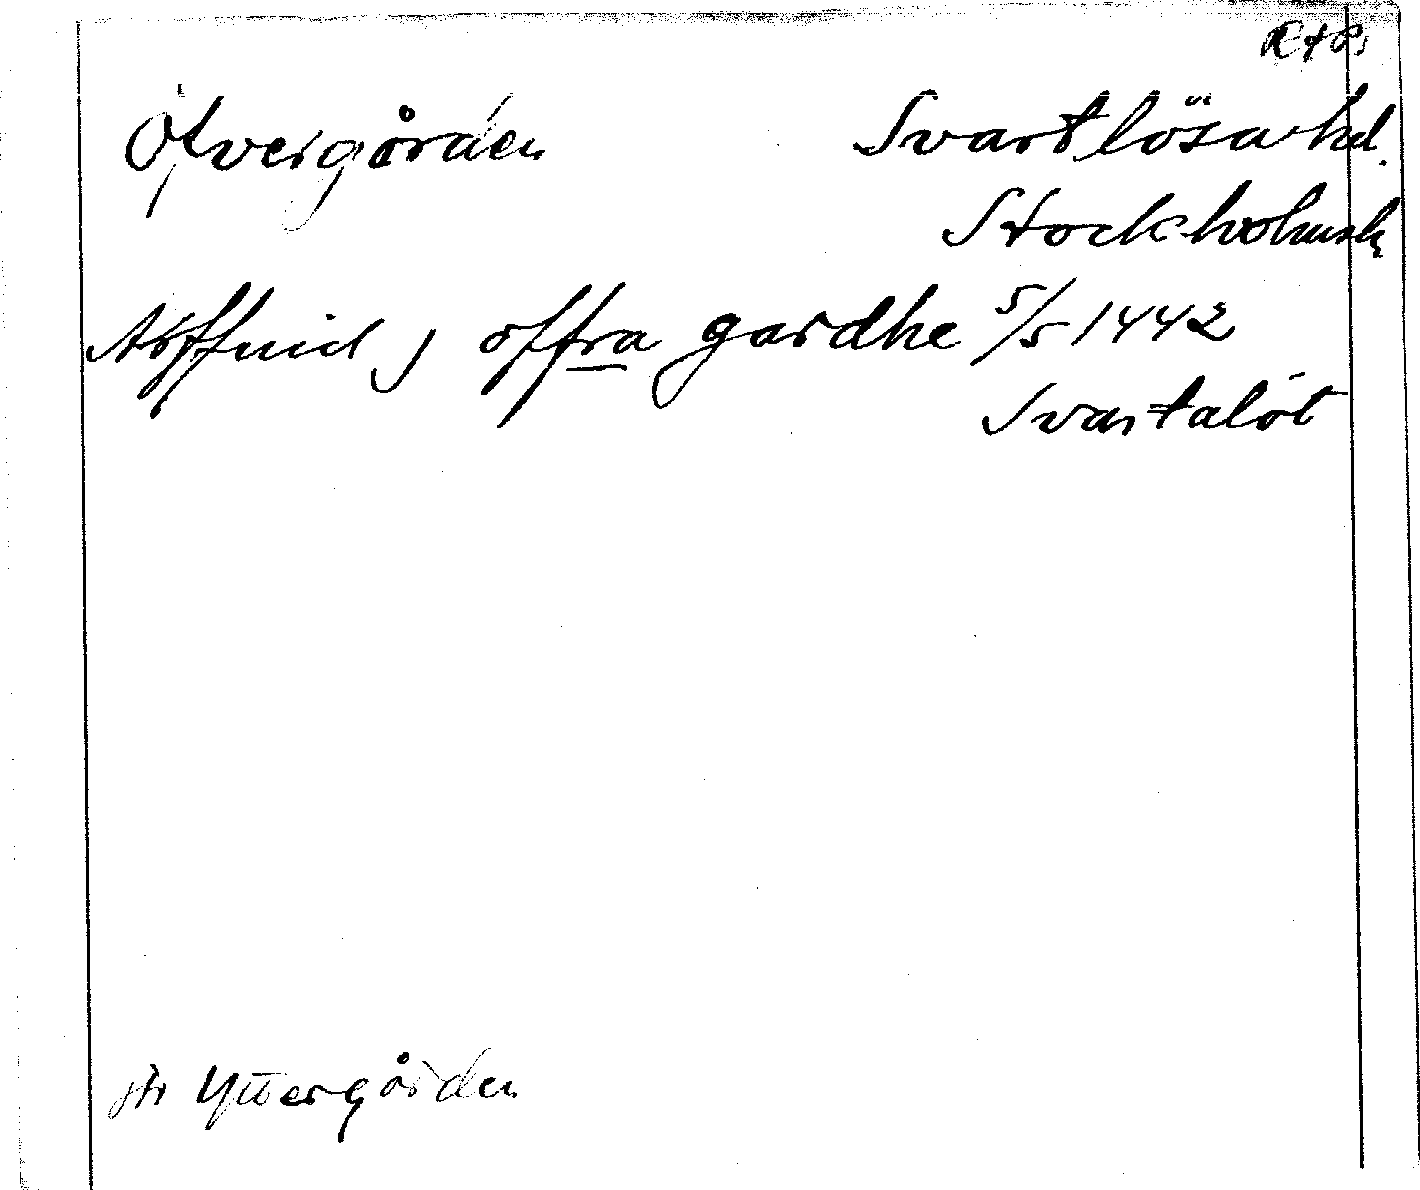 Öfvergården Svartlösa hd.
Stockholmsl.
j offra gardhe 5/5 1442
Svartalöt
jfr Yttergården